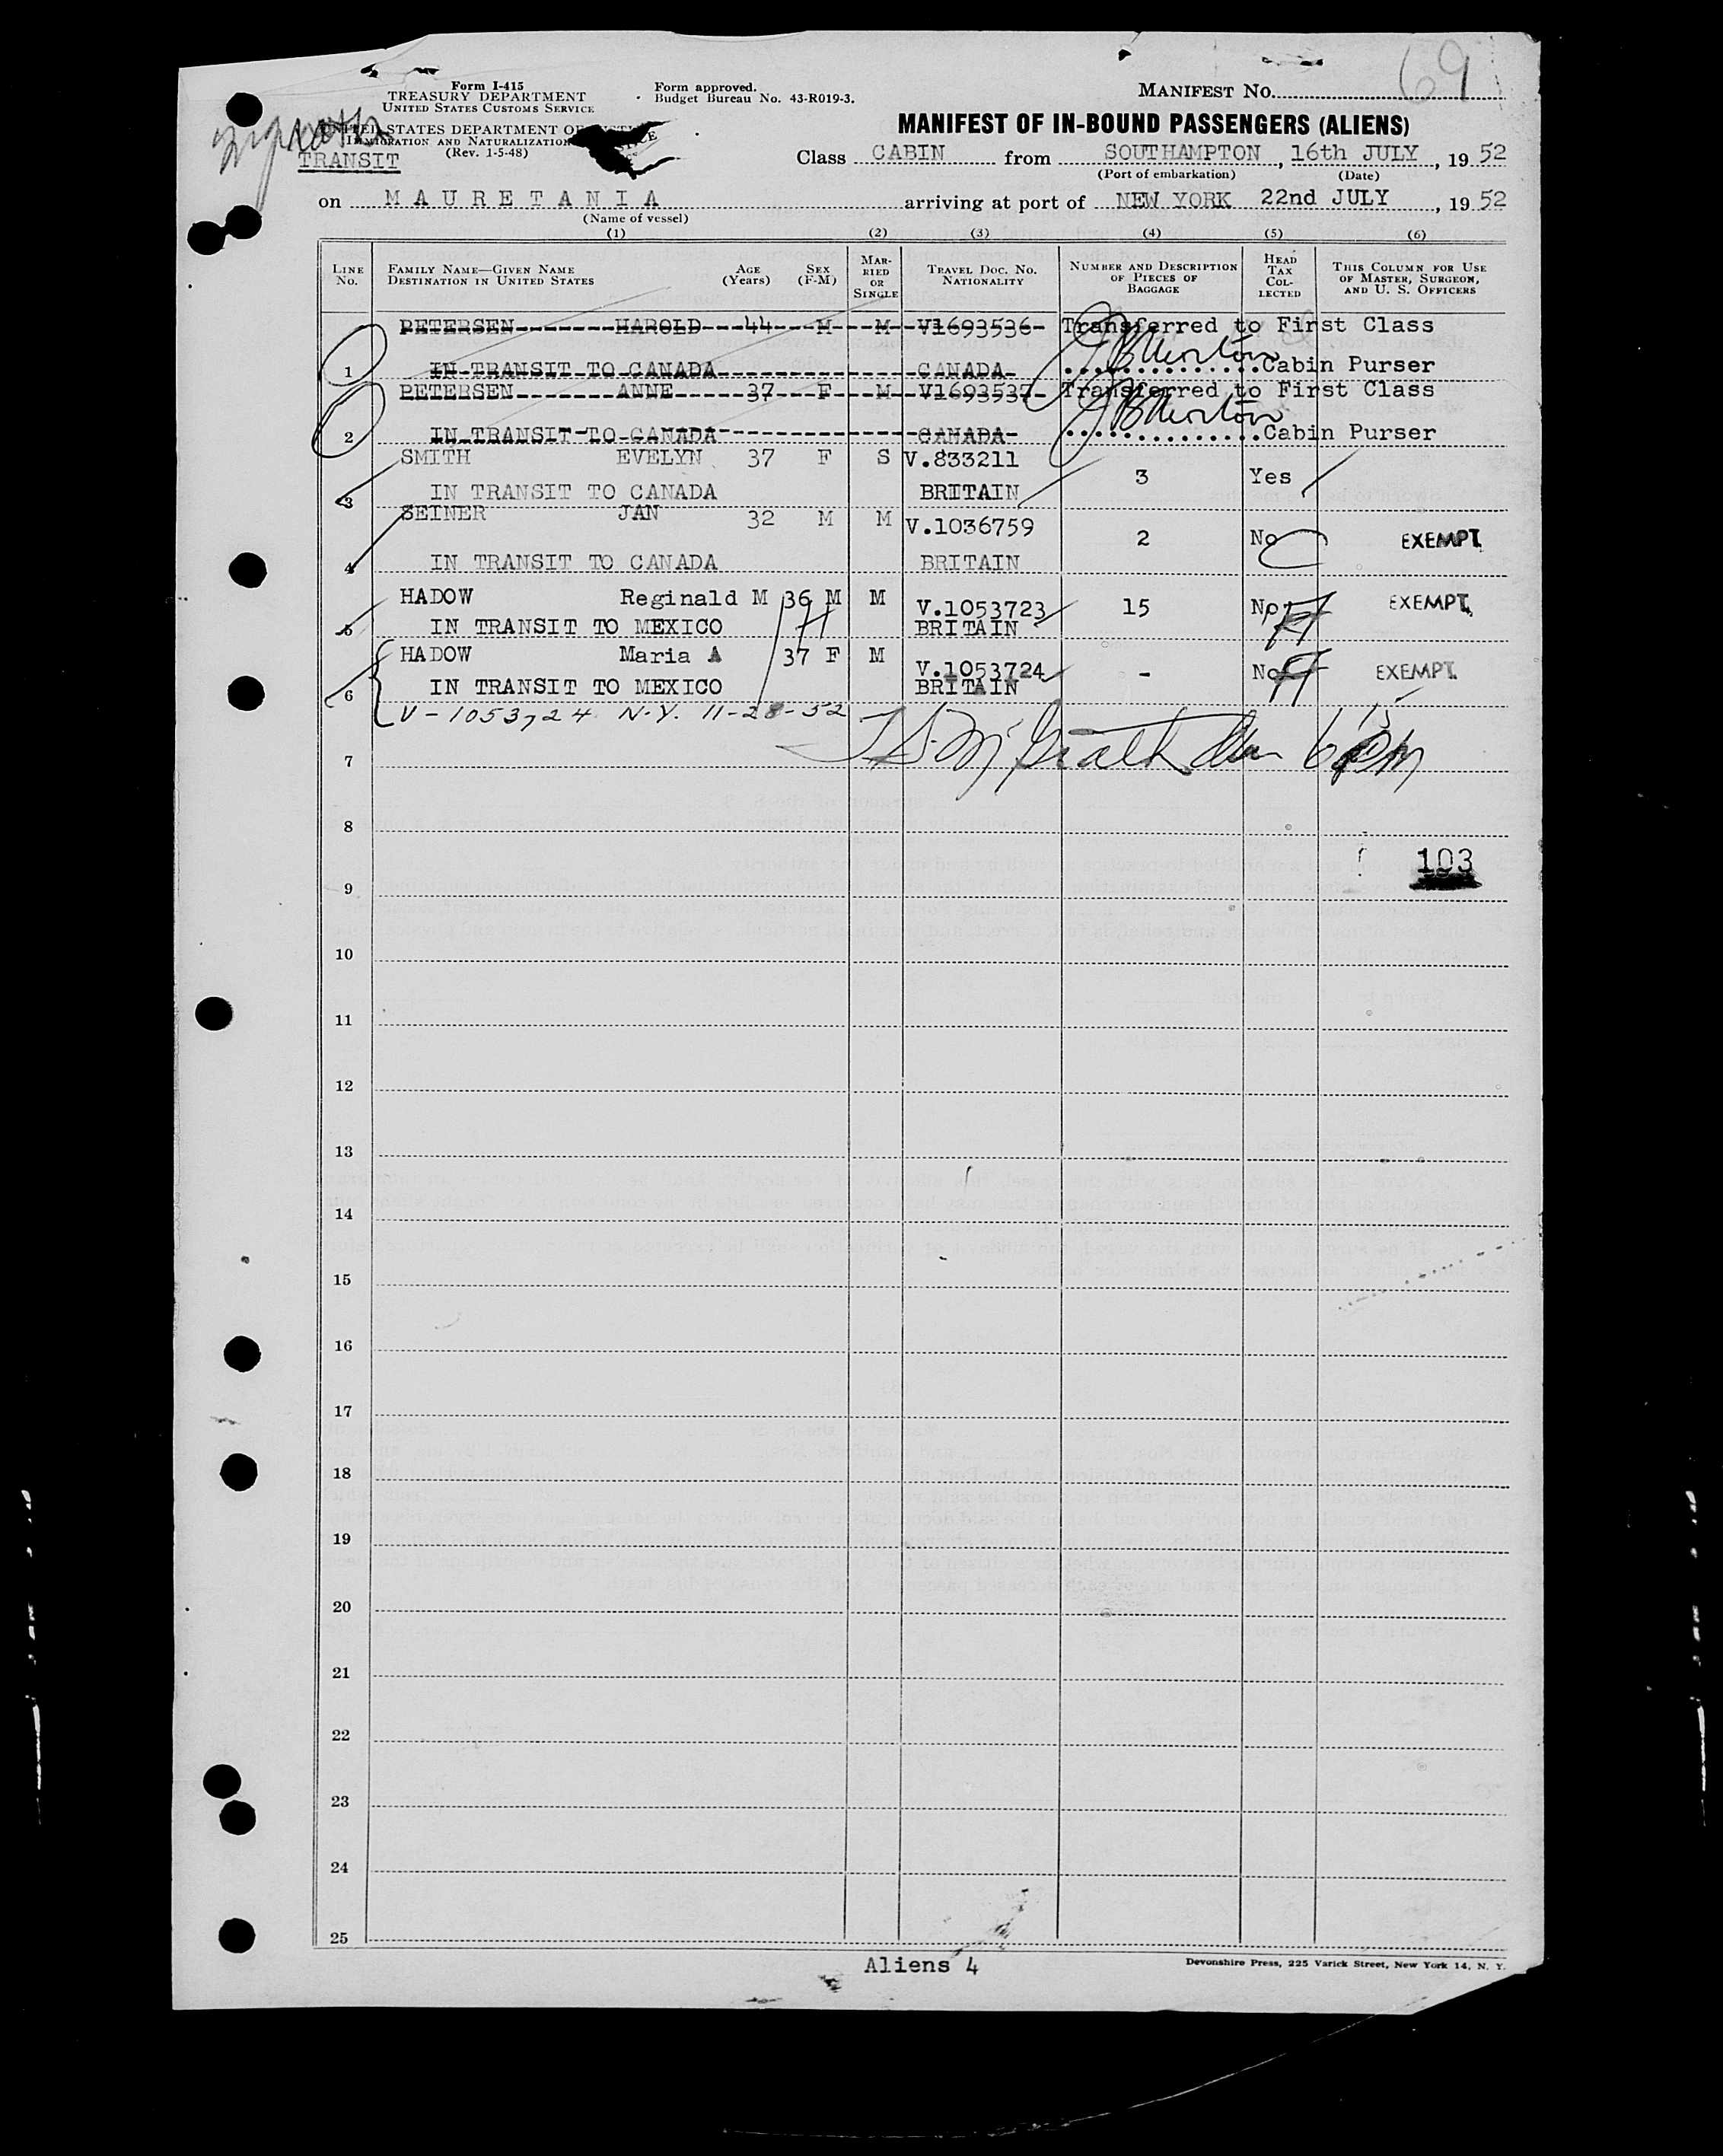 69
Form I-415
TREASURY DEPARTMENT
UNITED STATES CUSTOMS SERVICE
Form approved.
Budget Bureau No. 43-R019-3.
MANIFEST No.
UNITED STATES DEPARTMENT OF JUSTICE
IMMIGRATION AND NATURALIZATION
(Rev. 1-5-48)
TRANSIT
MANIFEST OF IN-BOUND PASSENGERS (ALIENS)
Class CABIN from SOUTHAMPTON, 16th JULY, 19 52
(Port of embarkation) (Date)
on MAURETANIA arriving at port of NEW YORK 22nd JULY, 19 52
(Name of vessel)
(1) (2) (3) (4) (5) (6)
LINE No. FAMILY NAME—GIVEN NAME DESTINATION IN UNITED STATES AGE (Years) SEX (F-M) MARRIED OR SINGLE TRAVEL DOC. NO. NATIONALITY NUMBER AND DESCRIPTION OF PIECES OF BAGGAGE HEAD TAX COLLECTED THIS COLUMN FOR USE OF MASTER, SURGEON, AND U. S. OFFICERS
PETERSEN HAROLD 44 M M V1693536 Transferred to First Class
1 IN TRANSIT TO CANADA CANADA Cabin Purser
PETERSEN ANNE 37 F M V1693537 Transferred to First Class
2 IN TRANSIT TO CANADA CANADA Cabin Purser
SMITH EVELYN 37 F S V.833211 3 Yes
3 IN TRANSIT TO CANADA BRITAIN
SEINER JAN 32 M M V.1036759 2 No EXEMPT
4 IN TRANSIT TO CANADA BRITAIN
HADOW Reginald M 36 M M V.1053723 15 No EXEMPT
5 IN TRANSIT TO MEXICO BRITAIN
HADOW Maria A 37 F M V.1053724 - No EXEMPT
6 IN TRANSIT TO MEXICO BRITAIN
V-1053724 N.Y. 11-28-52
7
8
103
9
10
11
12
13
14
15
16
17
18
19
20
21
22
23
24
25
Aliens 4
Devonshire Press, 225 Varick Street, New York 14, N. Y.